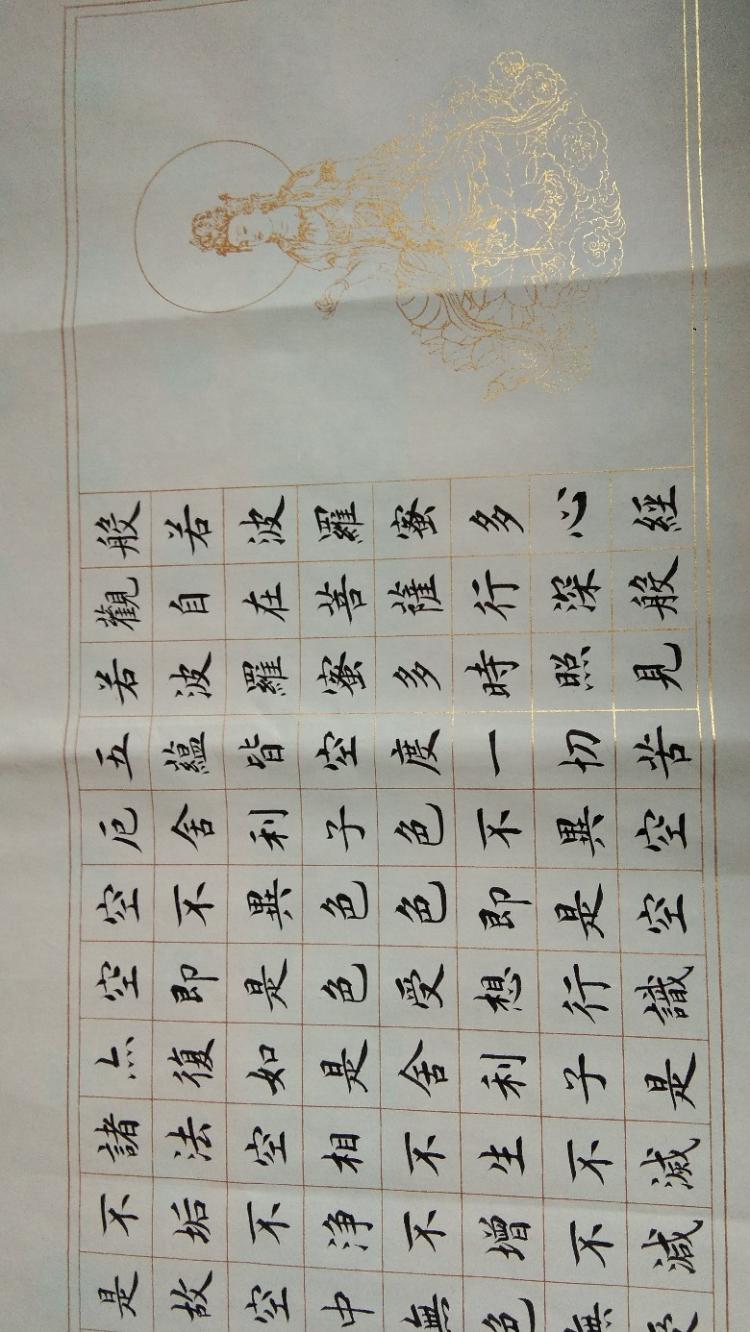 般若波羅蜜多心經
觀自在菩薩行深般
若波羅蜜多時照見
五蘊皆空度一切苦
厄舍利子色不異空
空不異色色即是空
空即是色受想行識
亦復如是舍利子是
諸法空相不生不滅
不垢不淨不增不減
是故空中無色無